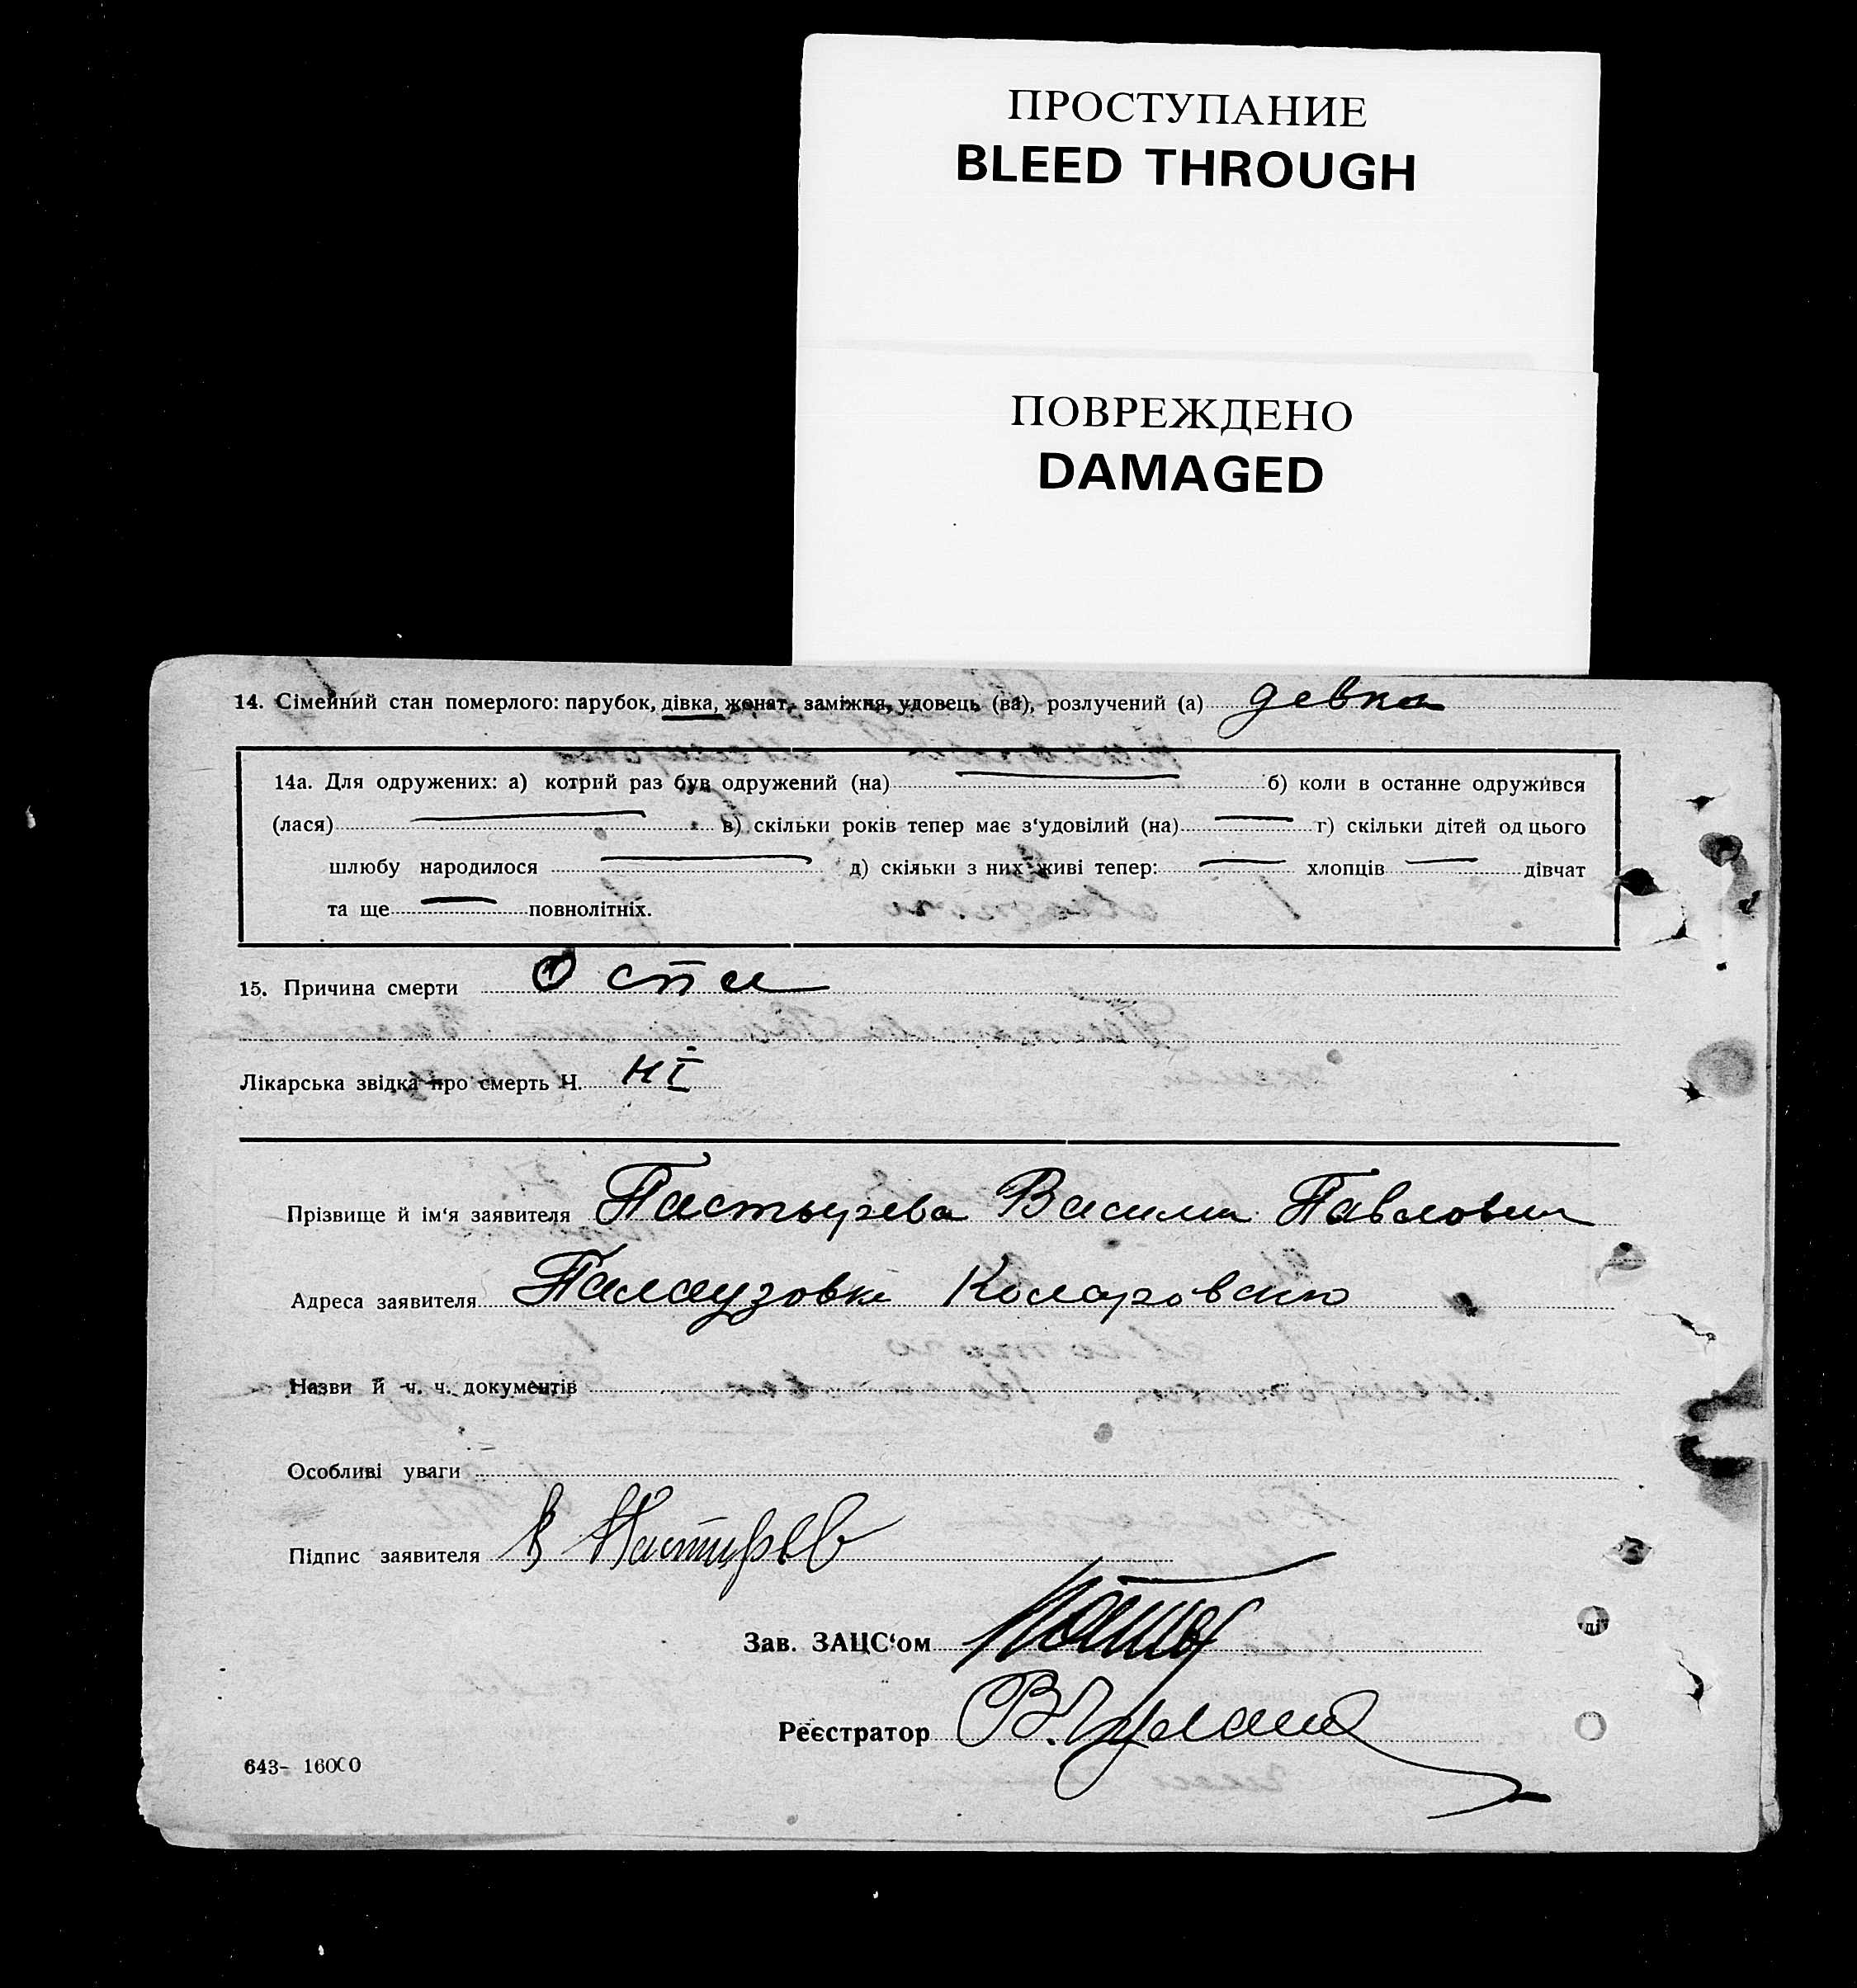 ПРОСТУПАНИЕ
BLEED THROUGH
ПОВРЕЖДЕНО
DAMAGED
14. Сімейний стан померлого: парубок, дівка, жонат, заміжня, удовець (ва), розлучений (а) девка
14а. Для одружених: а) котрий раз був одружений (на) б) коли в останне одружився
(лася) в) скільки років тепер має з‘удовілий (на) г) скільки дітей од цього
шлюбу народилося д) скільки з них живі тепер: хлопців дівчат
та ще повнолітніх.
15. Причина смерти Оспа
Лікарська звідка про смерть Ч. ні
Прізвище й ім‘я заявителя Пастырева Васили Павлович
Адреса заявителя Палаузовка Коларовско
Назви й ч. ч. документів
Особливі уваги
Підпис заявителя В Пастирев
Зав. ЗАЦС‘ом
Реєстратор В.
ції
643- 16000